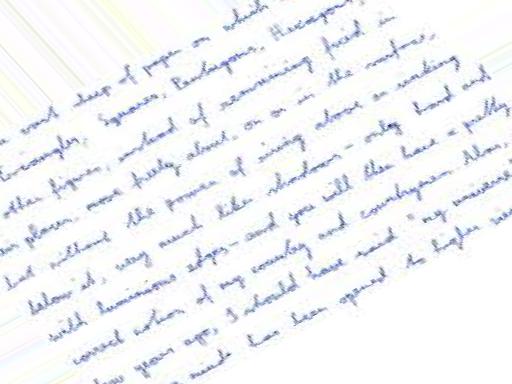 a vast sheep of paper on which
Triangles, Squares, Pentagons, Hexagons,
other figures, instead of remaining fixed in
places, move freely about, on or in the surface,
but without the power of rising above or sinking
below it, very much like shadows - only hard and
with luminous edges - and you will then have a pretty
correct notion of my country and countrymen. Alas,
few years ago, I should have said "my universe
mind has been opened to higher